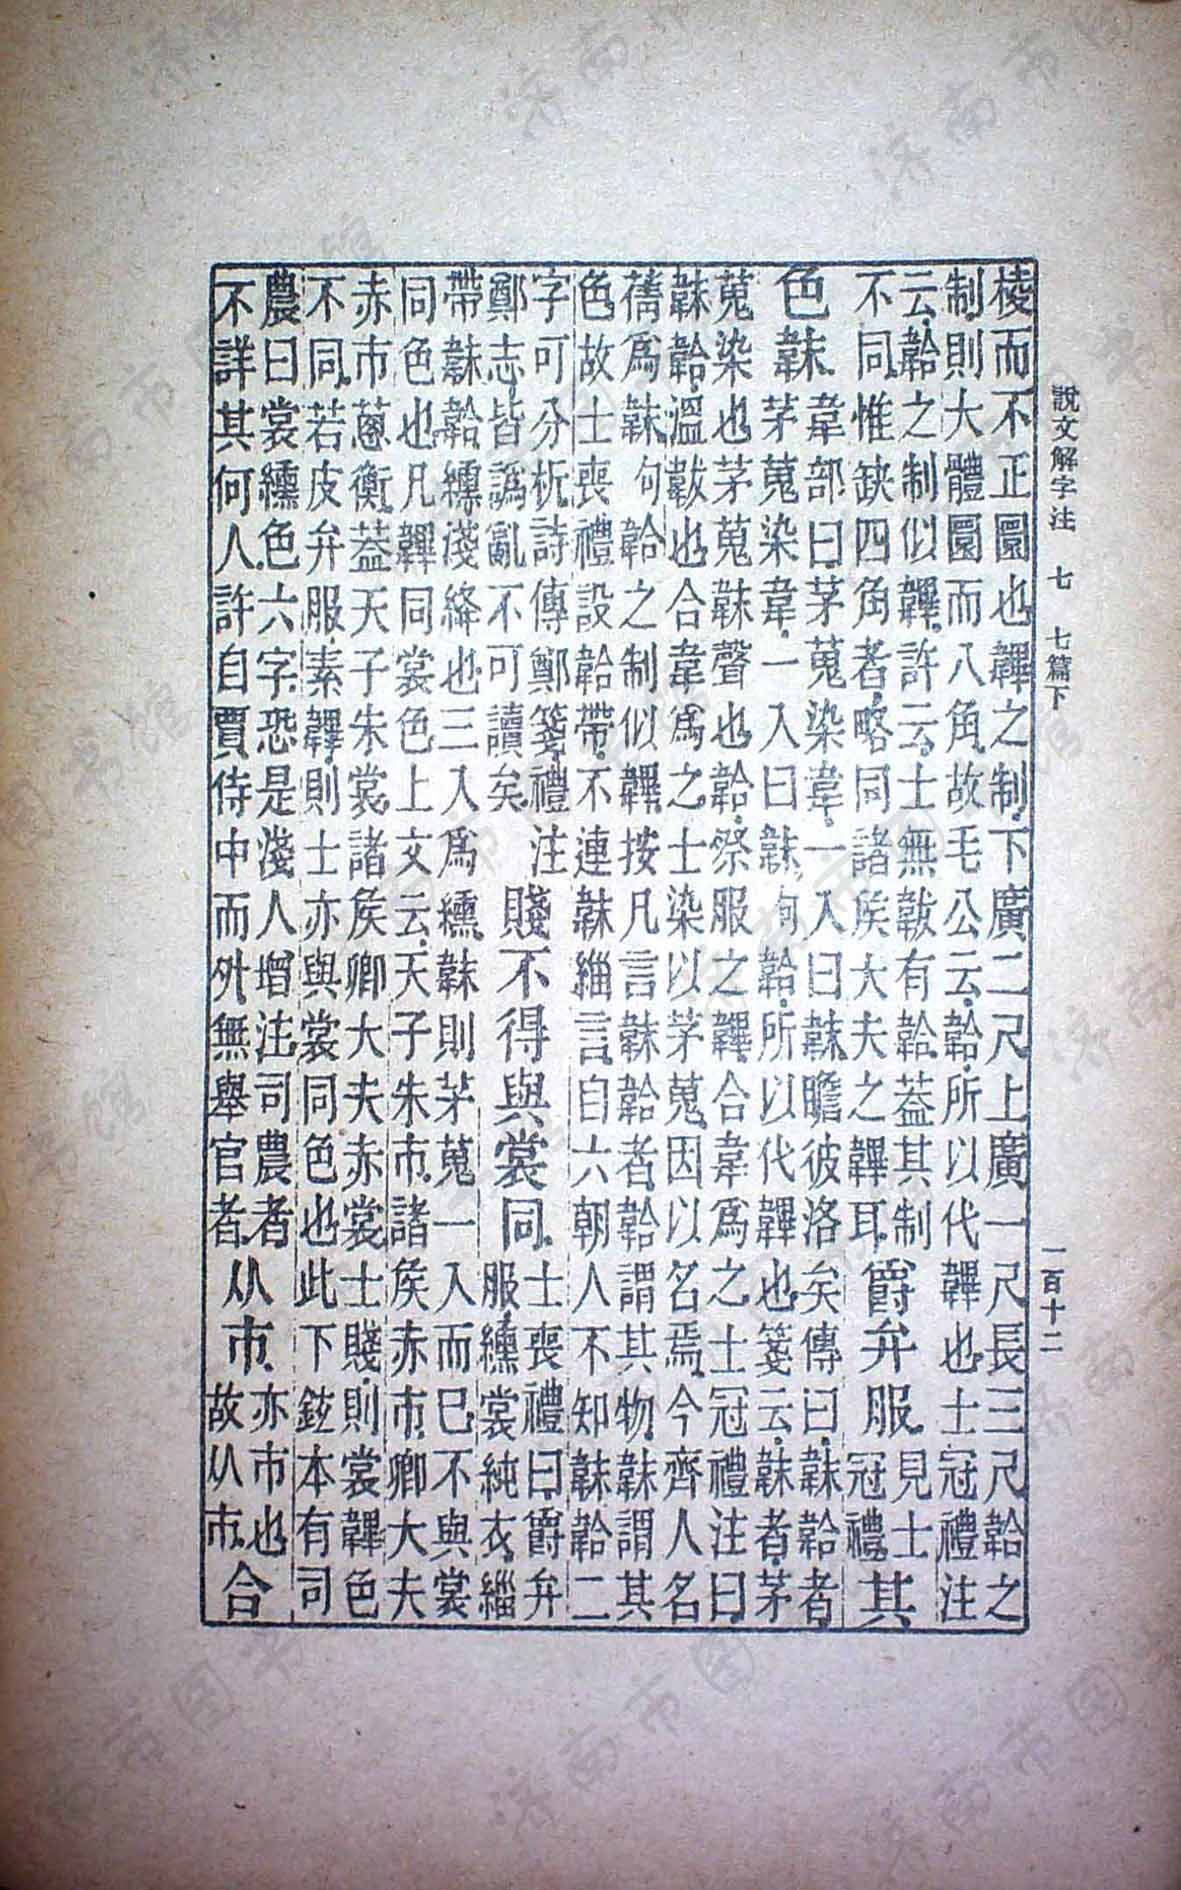 說文解字注　七　七篇下　一百十二
棱而不正圜也韠之制下廣二尺上廣一尺長三尺韐之
制則大體圜而八角故毛公云韐所以代韠也士冠禮注
云韐之制似韠許云士無韍有韐蓋其制
不同惟缺四角者略同諸矦大夫之韠耳
爵弁服
見士
冠禮
其
色韎
韋部曰茅蒐染韋一入曰韎瞻彼洛矣傳曰韎韐者
茅蒐染韋一入曰韎句韐所以代韠也箋云韎者茅
蒐染也茅蒐韎聲也韐祭服之韠合韋爲之士冠禮注曰
韎韐溫韍也合韋爲之士染以茅蒐因以名焉今齊人名
蒨爲韎句韐之制似韠按凡言韎韐者韐謂其物韎謂其
色故士喪禮設韐帶不連韎緇言自六朝人不知韎韐二
字可分析詩傳鄭箋禮注
鄭志皆譌亂不可讀矣
賤不得與裳同
士喪禮曰爵弁
服纁裳純衣緇
帶韎韐纁淺絳也三入爲纁韎則茅蒐一入而已不與裳
同色也凡韠同裳色上文云天子朱巿諸矦赤巿卿大夫
赤巿蔥衡蓋天子朱裳諸矦卿大夫赤裳士賤則裳韠色
不同若皮弁服素韠則士亦與裳同色也此下鉉本有司
農曰裳纁色六字恐是淺人增注司農者
不詳其何人許自賈侍中而外無舉官者
从巿
亦巿也
故从巿
合
济南市图书馆